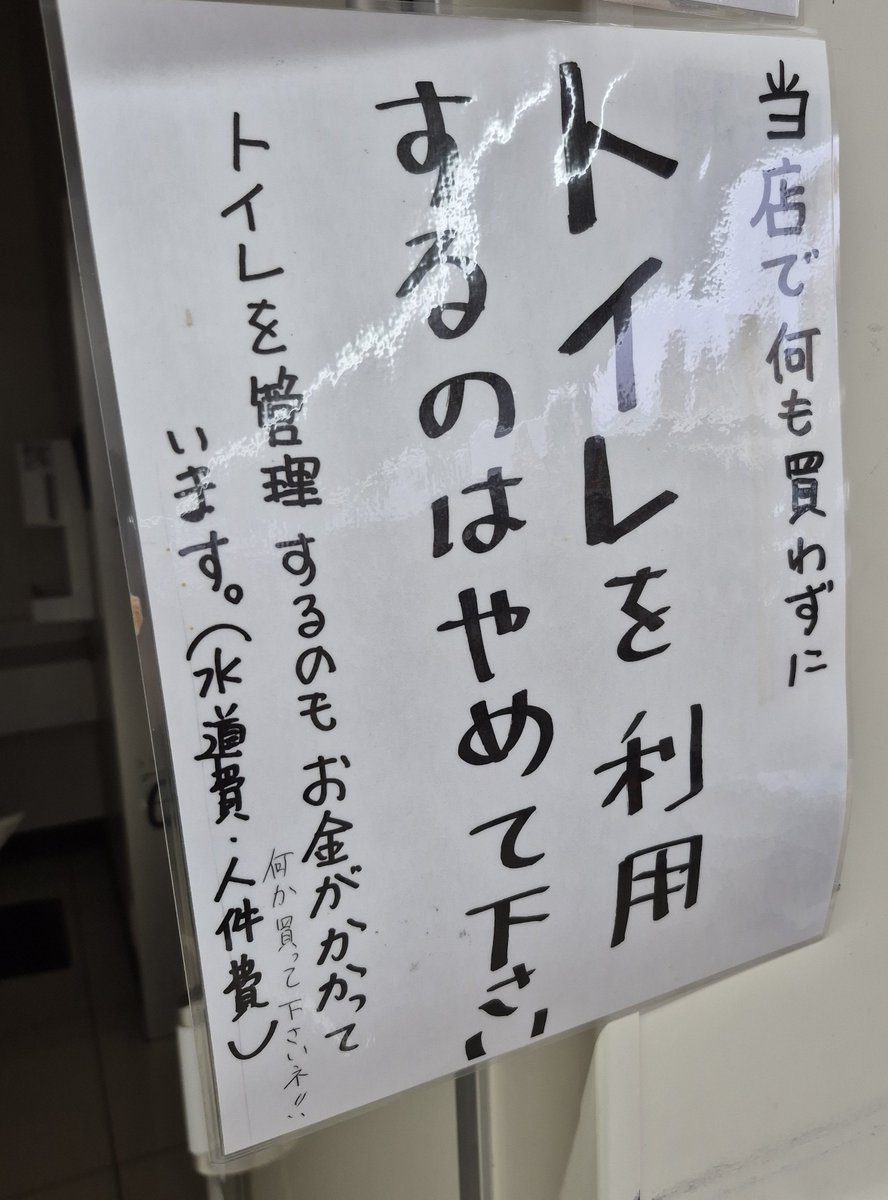 当店で何も買わずに
トイレを利用
するのはやめて下さい
トイレを管理するのもお金がかかって
います。(水道費・人件費)
何か買って下さいネ!!